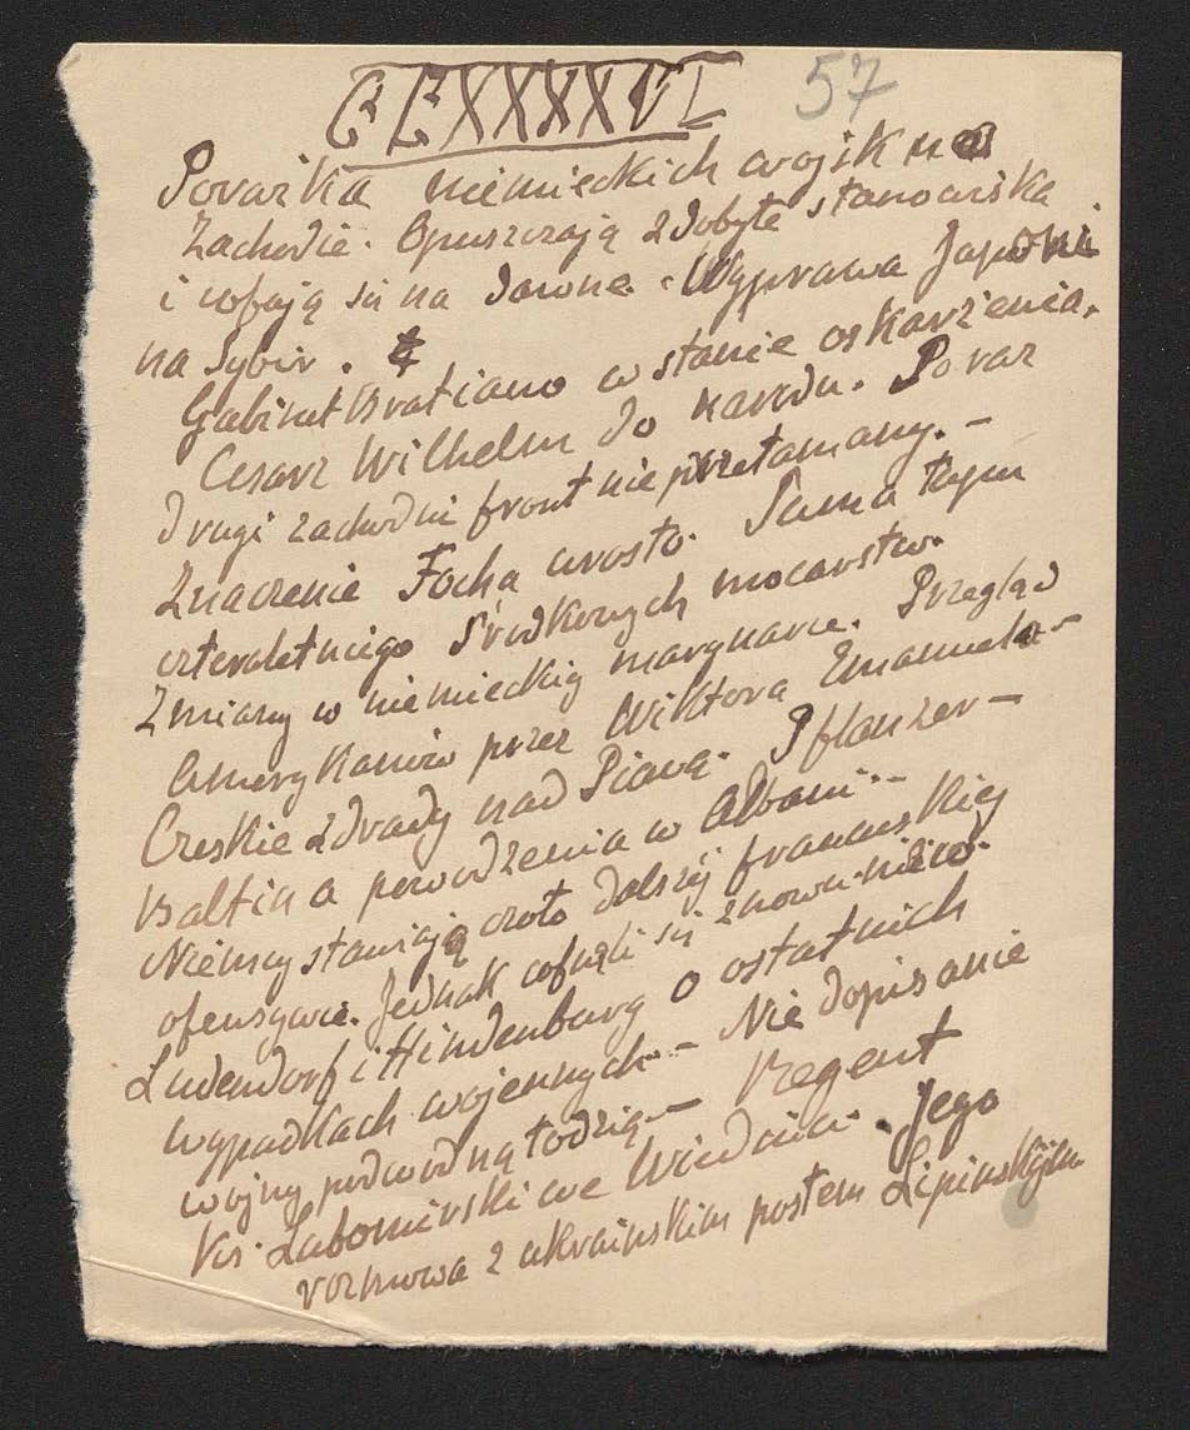 CCXXXXVI 57
Porażka niemieckich wojsk na
Zachodzie. Opuszczają zdobyte stanowiska
i cofają się na dawne. Wyprawa Japonii
na Sybir.
Gabinet Bratiano w stanie oskarżenia.
Cesarz Wilhelm do narodu. Po raz
drugi zachodni front nie przełamany. -
Znaczenie Focha wrosło. Suma tym
czteroletniego Środkowych mocarstw.
Zmiany w niemieckiej marynarce. Przegląd
Amerykanów przez Wiktora Emanuela -
Czeskie zdrady nad Piavą. Pflanzer -
Baltina powodzenia w Albanii. -
Niemcy stawiają czoło dalszej francuskiej
ofensywie. Jednak cofnęli się znowu.
Ludendorf i Hindenburg o ostatnich
wypadkach wojennych. - Nie dopisanie
wojny podwodną łodzią. - Regent
Ks. Lubomirski we Wiedniu. Jego
rozmowa z ukraińskim posłem Lipinskijm